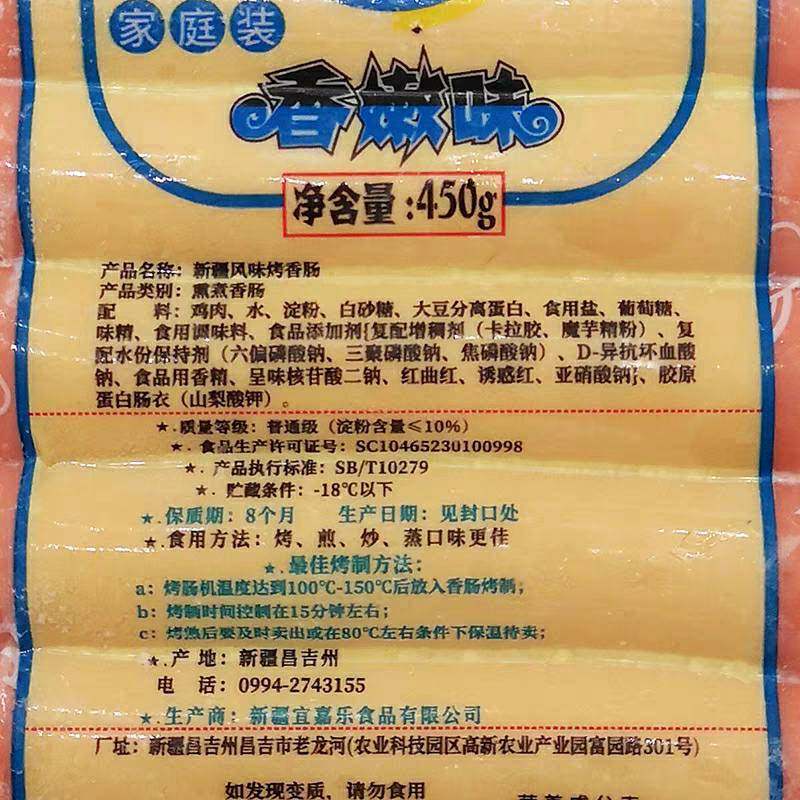 家庭装
香嫩味
净含量:450g
产品名称：新疆风味烤香肠
产品类别：熏煮香肠
配 料：鸡肉、水、淀粉、白砂糖、大豆分离蛋白、食用盐、葡萄糖、
味精、食用调味料、食品添加剂{复配增稠剂（卡拉胶、魔芋精粉）、复
配水份保持剂（六偏磷酸钠、三聚磷酸钠、焦磷酸钠）、D-异抗坏血酸
钠、食品用香精、呈味核苷酸二钠、红曲红、诱惑红、亚硝酸钠}、胶原
蛋白肠衣（山梨酸钾）。
★.质量等级：普通级（淀粉含量≤10%）
★.食品生产许可证号：SC10465230100998
★.产品执行标准：SB/T10279
★.贮藏条件：-18℃以下
★.保质期：8个月 生产日期：见封口处
★.食用方法：烤、煎、炒、蒸口味更佳
★.最佳烤制方法：
a：烤肠机温度达到100℃-150℃后放入香肠烤制；
b：烤制时间控制在15分钟左右；
c：烤熟后要及时卖出或在80℃左右条件下保温待卖；
★.产 地：新疆昌吉州
电 话：0994-2743155
★.生产商：新疆宜嘉乐食品有限公司
厂址：新疆昌吉州昌吉市老龙河(农业科技园区高新农业产业园富园路301号)
如发现变质，请勿食用